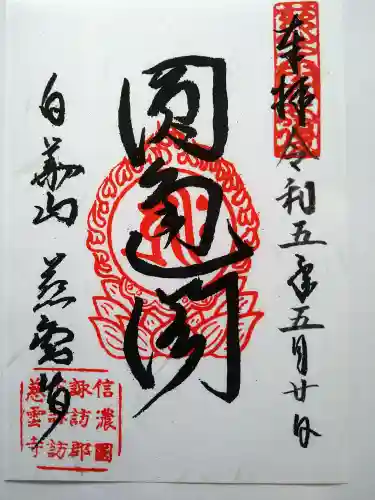 奉拝 令和五年五月廿日
圓通閣
白華山 慈雲寺
信濃國
諏訪郡
諏訪
慈雲寺